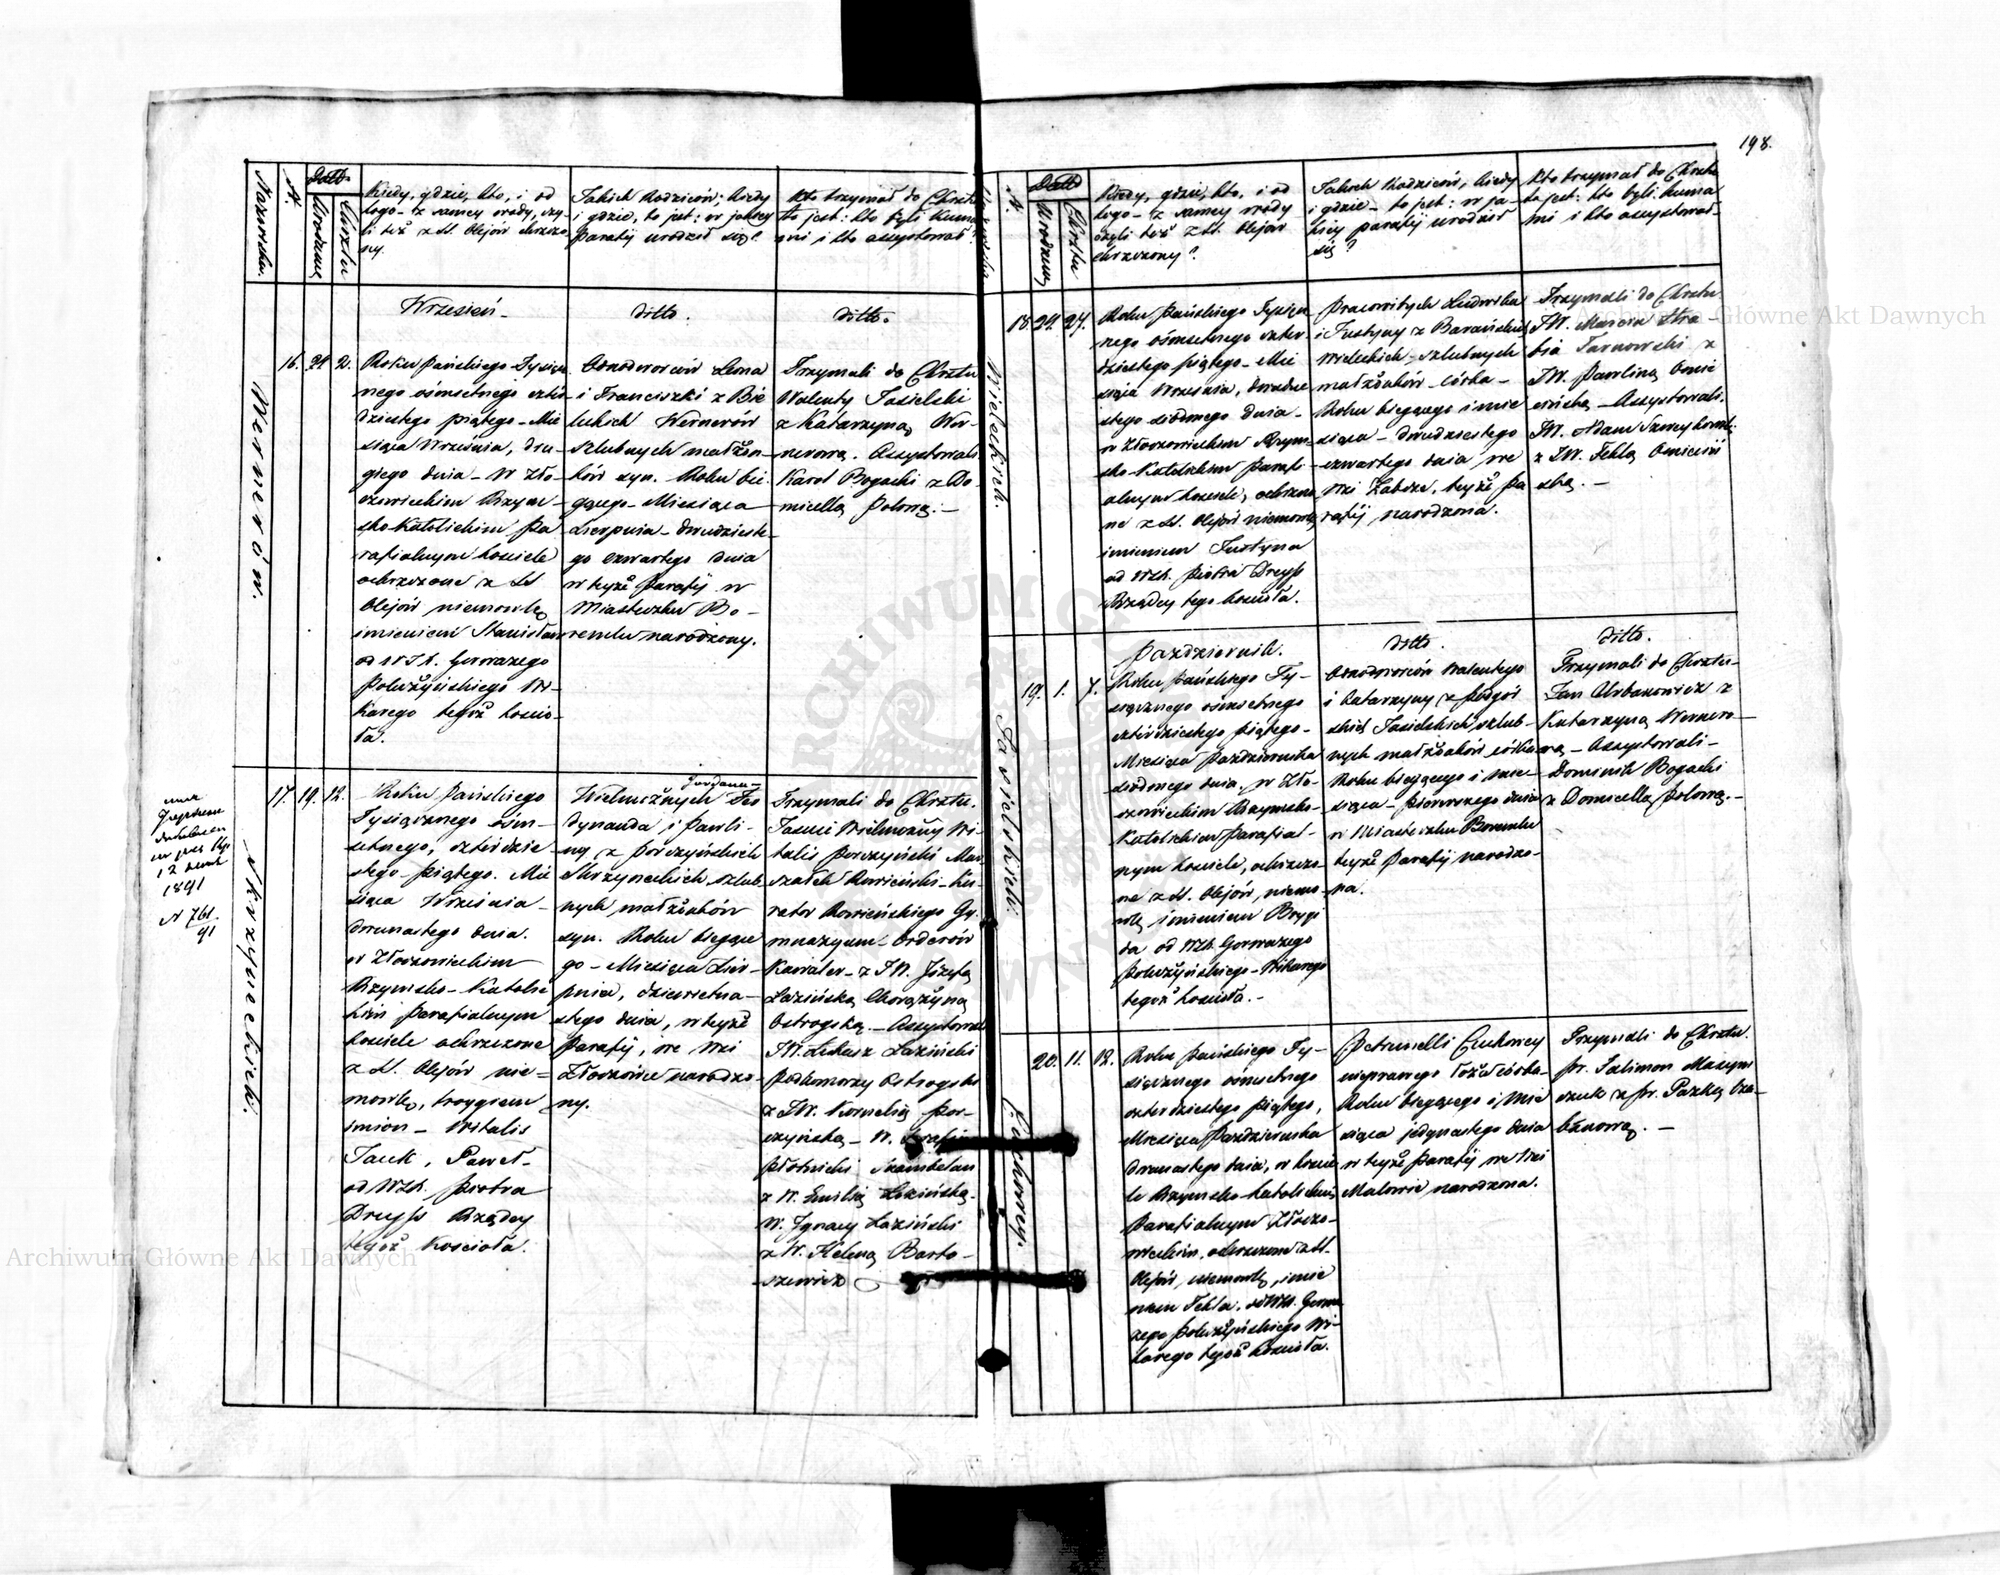 198.
Nazwiska.
N.
Data
Urodzenia
Chrztu
Kiedy, gdzie, kto, i od
kogo - z samej wody, czy-
li też z S. Olejów chrzczo
ny.
Jakich Rodziców; kiedy
i gdzie, to jest: w jakiej
Parafij urodził się?
Kto trzymał do Chrztu
to jest: kto byli kuma
mi i kto assystował?
Wrzesień -
ditto.
ditto.
Wernerów.
16. 24 2.
Roku Pańskiego Tysiącz
nego ośmsetnego czter
dziestego piątego - Mie
siąca Września, dru-
giego dnia - w Zło-
czowieckim Rzym-
sko-Katolickim Pa
rafialnym kościele
ochrzczone z S.
Olejów niemowlę
imieniem Stanisław
od WJX. Gerwazego
Połużyńskiego Wi-
karego tegoż kościo-
ła.
Jednodworców Leona
i Franciszki z Bie
leckich Wernerów
szlubnych małżon-
ków syn. Roku bie
gącego - Miesiąca
Sierpnia - dwudzieste-
go czwartego dnia
w tejże Parafij w
Miasteczku Bo-
remlu narodzony.
Trzymali do Chrztu
Walenty Jasielski
z Katarzyną Wer-
nerową. Assystowali
Karol Bogacki z Do-
micellą Polową. -
Skrzyneckich.
12
1891
N 761.
91
17. 19. 12.
Roku Pańskiego
Tysiącznego ośm-
setnego, czterdzie-
stego - piątego. Mie
siąca Września -
dwunastego dnia.
w Złoczowieckim
Rzymsko - Katolic
kim Parafialnym
kościele ochrzczone
z S. Olejów nie-
mowlę, trzygiem
imion - Witalis
Jacek, Paweł -
od WJX. Piotra
Dreyss Rządcy
tegoż Kościoła.
Wielmożnych Fer
dynanda i Pauli-
ny z Porczyńskich
Skrzyneckich szlub
nych małżonków
syn. Roku bieżące
go - Miesiąca Sier-
pnia, dziewietna-
stego dnia, w tejże
Parafij, we Wsi
Złoczówce narodzo-
ny.
Trzymali do Chrztu.
Jaśnie Wielmożny Wi-
talis Porczyński Mar-
szałek Rowieński - Ku-
rator Rowieńskiego Gy-
mnazyum - Orderów
Kawaler - z JW. Józefą
Łazińską Chorążyną
Ostrogską. - Assystowali
JW. Łukasz Łaziński
Podkomorzy Ostrogski
z JW. Kornelią Por-
czyńską - W. Serafin
Płotnicki Szambelan
z W. Emilią Łozińską.
W. Ignacy Łaziński
z W. Heleną Barto-
szewicz
Nazwiska
N.
Data
Urodzenia
Chrztu
Kiedy, gdzie, kto, i od
kogo - z samej wody
czyli też z S. Olejów
chrzczony?
Jakich Rodziców; kiedy
i gdzie - to jest: w ja-
kiej parafij urodził
się?
Kto trzymał do Chrztu
to jest: kto byli kuma
mi i kto assystował -
Wieleckich.
18. 24. 27.
Roku Pańskiego Tysiącz
nego ośmsetnego czter-
dziestego piątego - Mie
siąca Września, dwudzie
stego siódmego dnia -
w Złoczowieckim Rzym-
sko-Katolickim Parafi-
alnym kościele, ochrzczo
ne z S. Olejów niemowlę
imieniem Justyna
od WJX. Piotra Dreyss
Rządcy tego kościoła.
Pracowitych Ludwika
i Justyny z Barańskich
Wieleckich - szlubnych
małżonków - córka -
Roku biegącego i mie
siąca - dwudziestego
czwartego dnia we
Wsi Łabcze, tejże Pa
rafij narodzona.
Trzymali do Chrztu
JW. Marcin Hra-
bia Tarnowski z
JW. Pawliną Omie
cińską - Assystowali.
JW. Adam Szweykowski
z JW. Teklą Omieciń
ską. -
Październik.
ditto.
ditto.
Jasielskich.
19. 1. 7.
Roku Pańskiego Ty-
siącznego ośmsetnego
czterdziestego piątego -
Miesiąca Października
siódmego dnia, w Zło-
czowieckim Rzymsko-
Katolickim Parafial-
nym kościele, ochrzczo-
ne z S. Olejów, niemo-
wlę imieniem Brygi
da od WJX. Gerwazego
Połużyńskiego - Wikarego
tegoż kościoła. -
Jednodworców Walentego
i Katarzyny z Podgór
skich Jasielskich szlub-
nych małżonków córka
Roku bieżącego i mie-
siąca - pierwszego dnia
w Miasteczku Boremlu
tejże Parafij narodzo-
na.
Trzymali do Chrztu -
Jan Urbanowicz z
Katarzyną Wernero-
wą - Assystowali -
Dominik Bogacki
z Domicellą Polową. -
Cuchowey.
20. 11. 12.
Roku Pańskiego Ty-
siącznego ośmsetnego
czterdziestego piątego,
Miesiąca Października
dwunastego dnia, w koście
le Rzymsko-katolickim
Parafialnym Złoczo-
wieckim, ochrzczone z S.
Olejów, niemowlę, imie
niem Tekla. od WJX. Gerwa
zego Połużyńskiego Wi-
karego tegoż kościoła.
Petrunelli Cuchowey
nieprawego łoża córka -
Roku biegącego i Mie
siąca jedynastego dnia
w tejże Parafij we Wsi
Malowie narodzona.
Trzymali do Chrztu.
pr. Salimon Maxym
czuk z pr. Pazką Cza-
banową. -
Archiwum Główne Akt Dawnych
Archiwum Główne Akt Dawnych